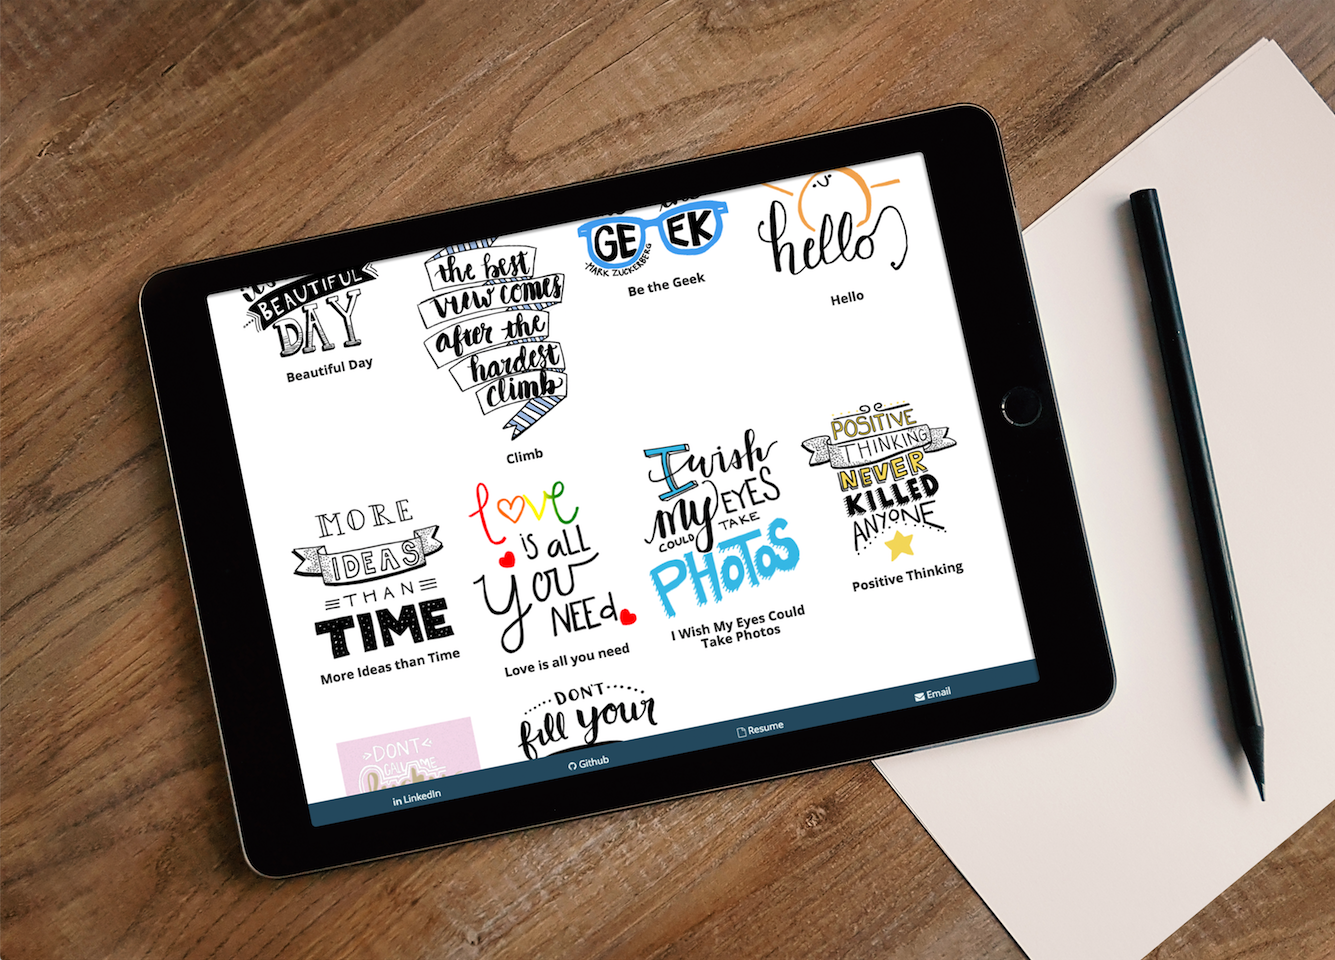 BEAUTIFUL
DAY
Beautiful Day
the best
view comes
after the
hardest
climb
Climb
GEEK
MARK ZUCKERBERG
Be the Geek
hello
Hello
MORE
IDEAS
THAN
TIME
More Ideas than Time
love
is all
You
NEEd
Love is all you need
I wish
My EYES
COULD TAKE
PHOTOS
I Wish My Eyes Could
Take Photos
POSITIVE
THINKING
NEVER
KILLED
ANYONE
Positive Thinking
DONT
CALL ME
DON'T
fill your
in LinkedIn
Github
Resume
Email